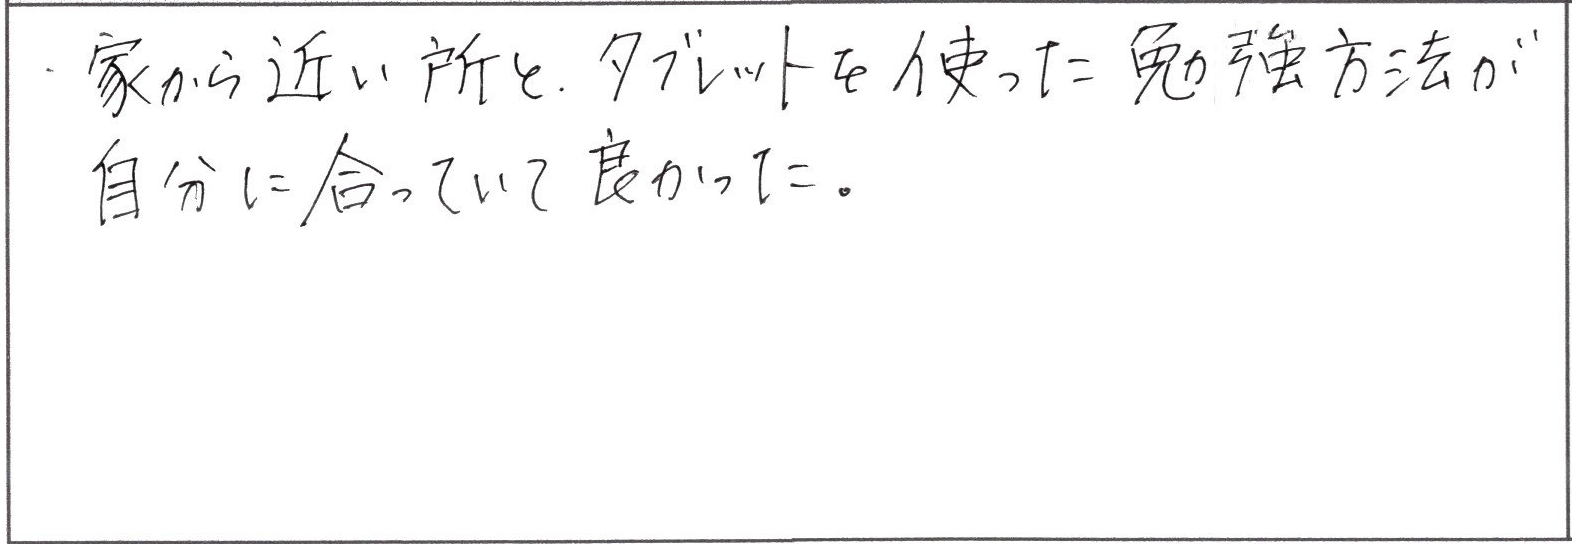 ・家から近い所と、タブレットを使った勉強方法が
自分に合っていて良かった。